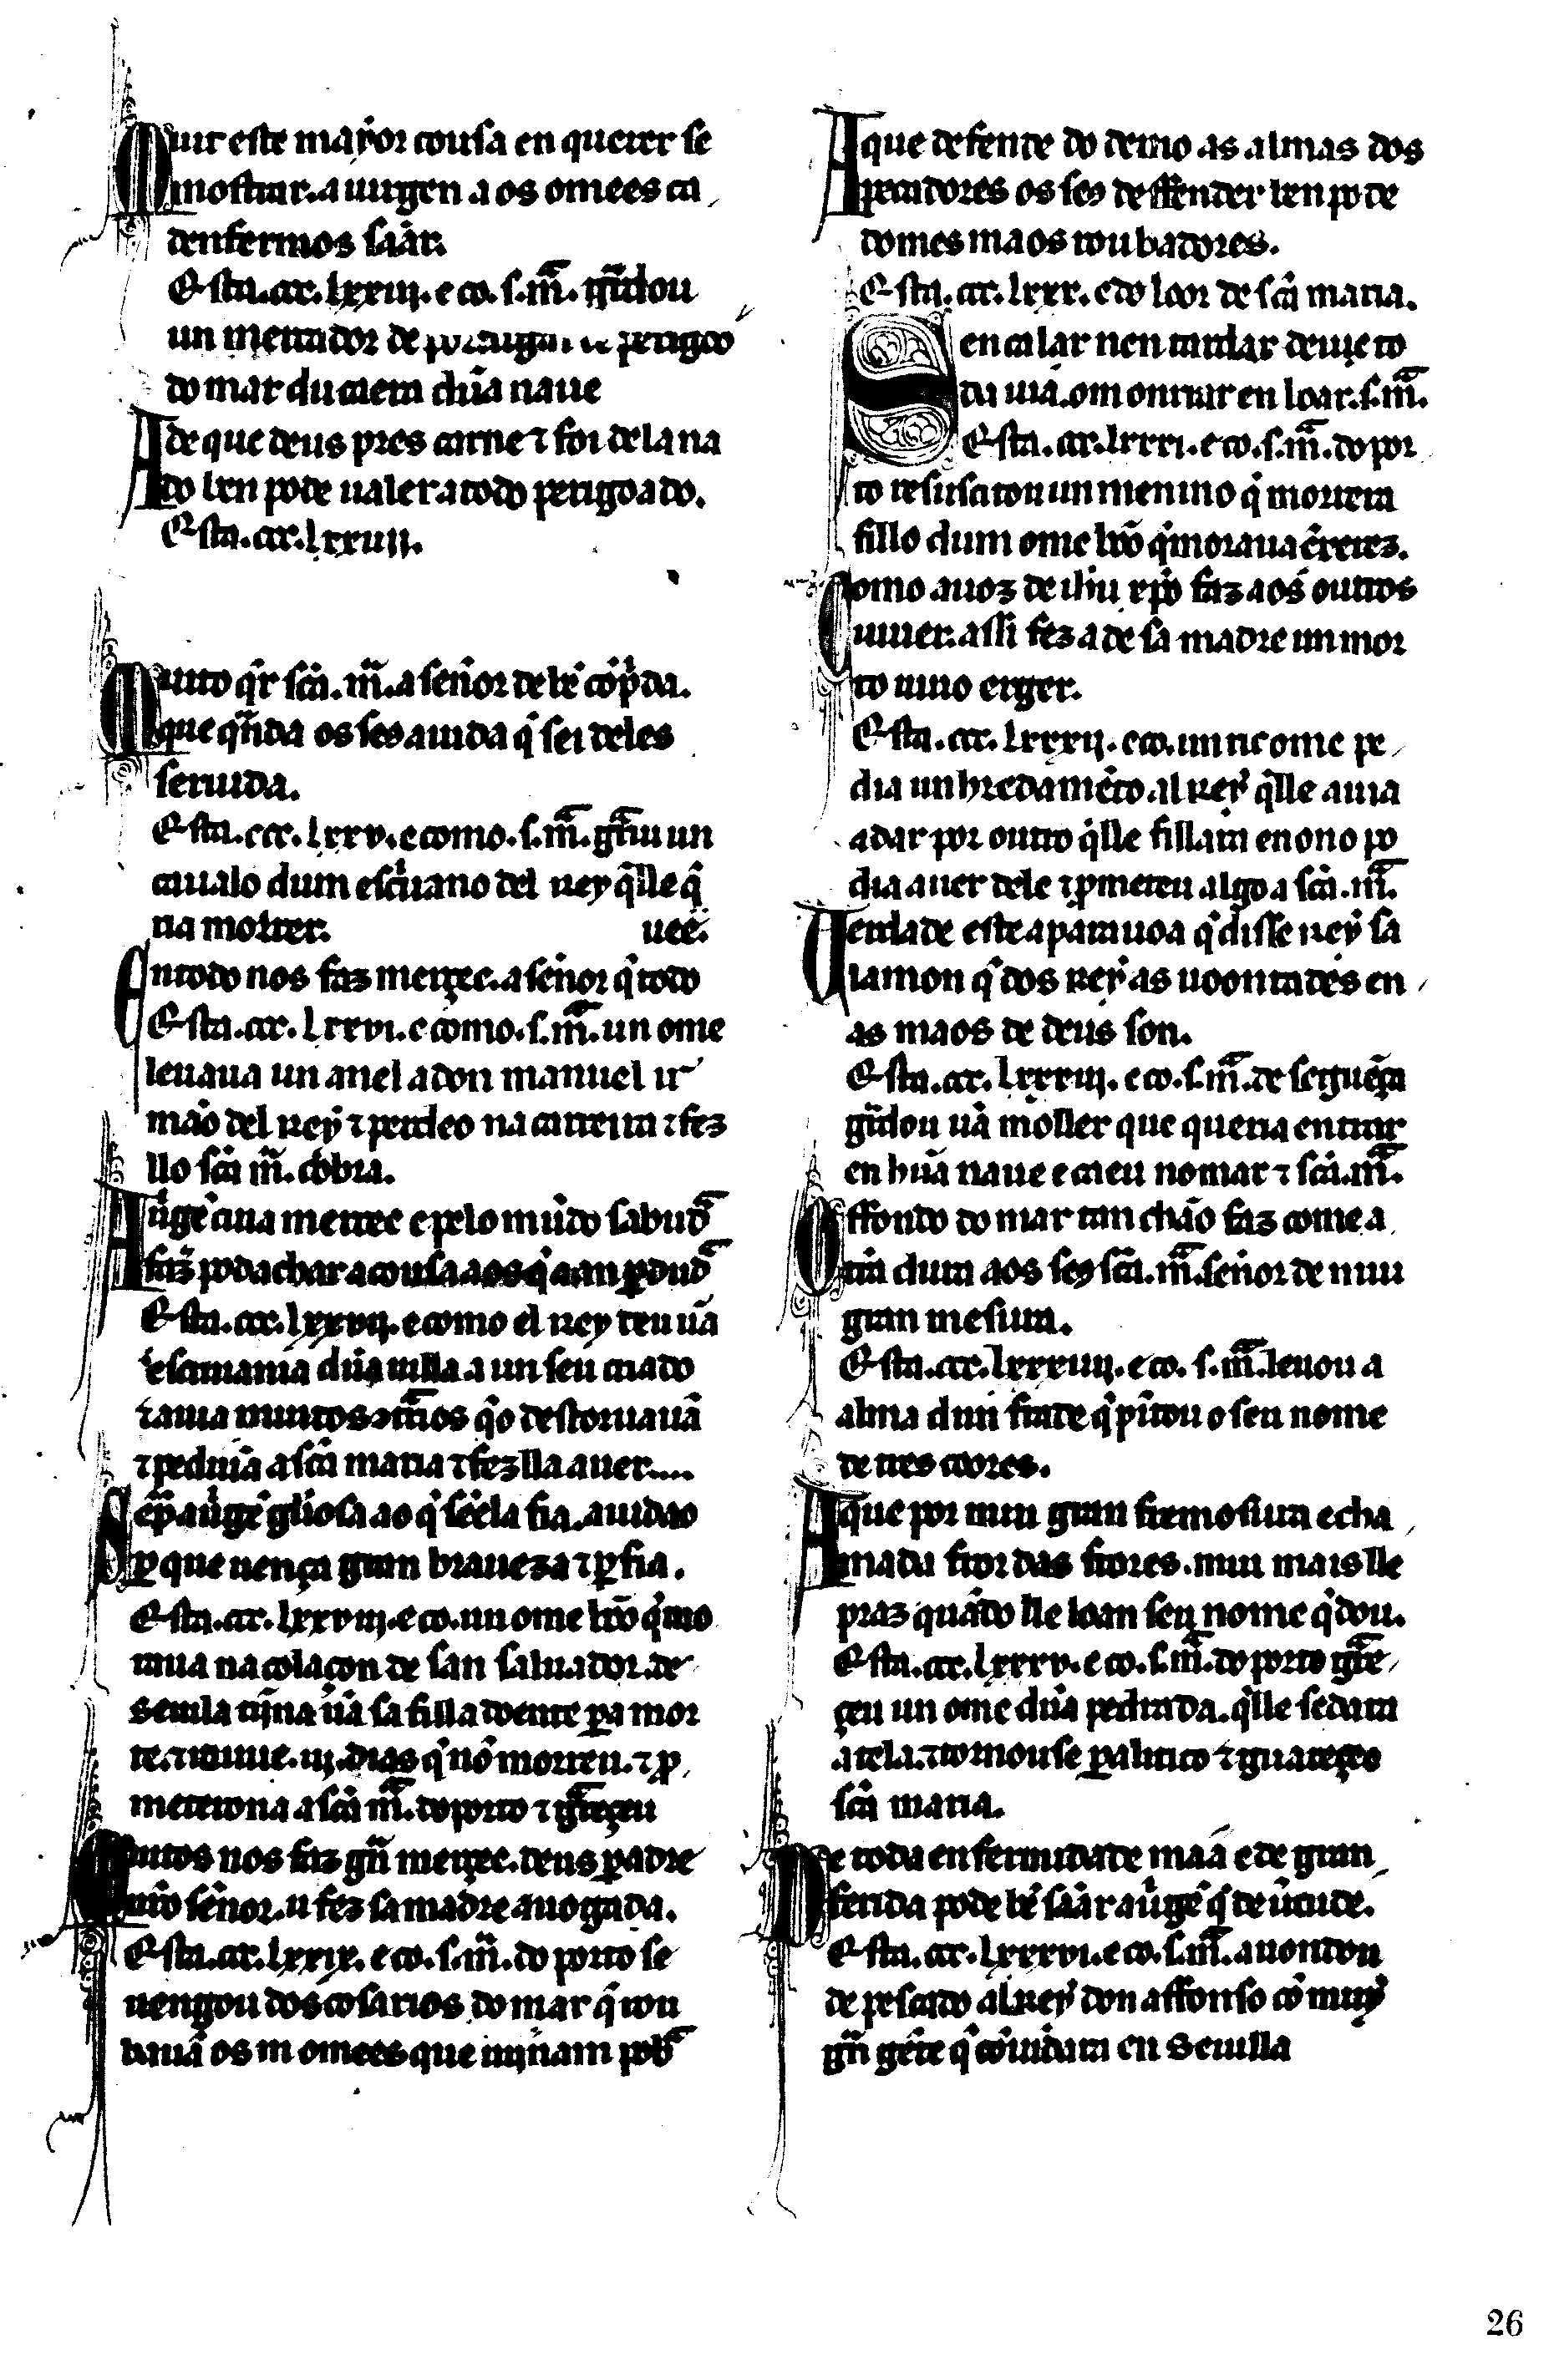 Mur este mayor cousa en querer se
mostrar. a uirgen a os omees ca
denfermos sãar.
Esta .ccc. lxxiiij. e co. s. m̃. guardou
un mercador de portugal de perigoo
do mar du caera dũa naue
A de que deus pres carne ⁊ foi dela na
do ben pode ualer a todo perigoado.
Esta .ccc. lxxiiij.
Muito q̇r sc̃a. m̃. a señor de bẽ cõp̃da.
que q̃nda os seos a uida q̇ sei deles
seruida.
Esta .ccc. lxxv. e como. s. m̃. g̃riu un
caualo dum esc̃uano del rey q̇lle q̇
ria morrer. uee.
En todo nos faz merçee. a señor q̇ todo
Esta .ccc. lxxvi. e como. s. m̃. un ome
leuaua un anel a don manuel ir
mão del rey ⁊ perdeo na carreira ⁊ fez
llo sc̃a m̃. cobrar.
A uirgẽ cuia merçee e pelo mũdo sabuda
faz poda char a cousa aos q̇ a an ꝑduda
Esta .ccc. lxxvij. e como el rey deu ũa
escriuania dũa uilla a un seu criado
⁊ auia muitos ↄtrarios q̇o destoruauã
⁊ pediuia a sc̃a maria ⁊ fezlla auer....
Sep̃ a uirgẽ gliosa ao q̇ sẽ ela fia. auidao
ꝑ que uença gran braueza ⁊ ꝑfia.
Esta .ccc. lxxviij. e co. un ome bõo q̇ mo
raua na colaçon de san saluador. de
Seuilla tijna ũa sa filla doente ꝑa mor
te. ⁊ iouue .iij. dias q̇ nõ morreu. ⁊ ꝓ
meterona a sc̃a m̃. do porto ⁊ g̃reçeu
Muitos nos faz gñ merçee. deus ꝑadre
nrõ señor. u fez sa madre auogada.
Esta .ccc. lxxix. e co. s. m̃. do porto se
uengou dos cosarios do mar q̇ rou
bauã os m omees que uijñam pobrar
A que defende do demo as almas dos
pecadores os seos deffender ben pode
domes maos roubadores.
Esta .ccc. lxxx. e do loor de sc̃a maria.
Sen calar nen tardar deueto
da uia. om onrrar en loar. s. m̃.
Esta .ccc. lxxxi. e co. s. m̃. do por
to resuscitou un menino q̇ morrera
fillo dum ome bõo q̇ moraua ẽ xerez.
Como a uoz de ihu xp̃o faz aos outros
uiuer. assi fez a de sa madre un mor
to uiuo erger.
Esta .ccc. lxxxij. e co. un ric ome pe
dia un hredamẽto al rey q̇lle auia
a dar por outro q̇lle fillara e no no po
dia auer dele ⁊ ꝓmeteu algo a sc̃a. m̃.
Uerdade este a parauoa q̇ disse rey sa
lamon q̇ dos reys as uoontades en
as maos de deus son.
Esta .ccc. lxxxiij. e co. s. m̃. de seguẽça
guardou ũa moller que queria entrar
en hũa naue e caeu no mar ⁊ sc̃a. m̃.
O ffondo do mar tan chão faz come a
terra dura aos seos sc̃a. m̃. señor de mui
gran mesura.
Esta .ccc. lxxxiiij. e co. s. m̃. leuou a
alma dun frade q̇ pĩtou o seu nome
de tres coores.
A que por mui gran fremosura e cha
mada fror das frores. mui mais lle
praz quãdo lle loan seu nome q̇ dou.
Esta .ccc. lxxxv. e co. s. m̃. do porto g̃re
çeu un ome dũa pedrada. q̇lle sedara
a tela. ⁊ tornouse ꝑalitico ⁊ guareçeo
sc̃a maria.
De toda enfermidade maa e de gran
ferida pode bẽ sãar a uirgẽ q̇ de uirtude.
Esta .ccc. lxxxvi. e co. s. m̃. auondou
de pescado al rey don affonso cõ muy
gñ gẽte q̇ cõuidara en Seuilla
26